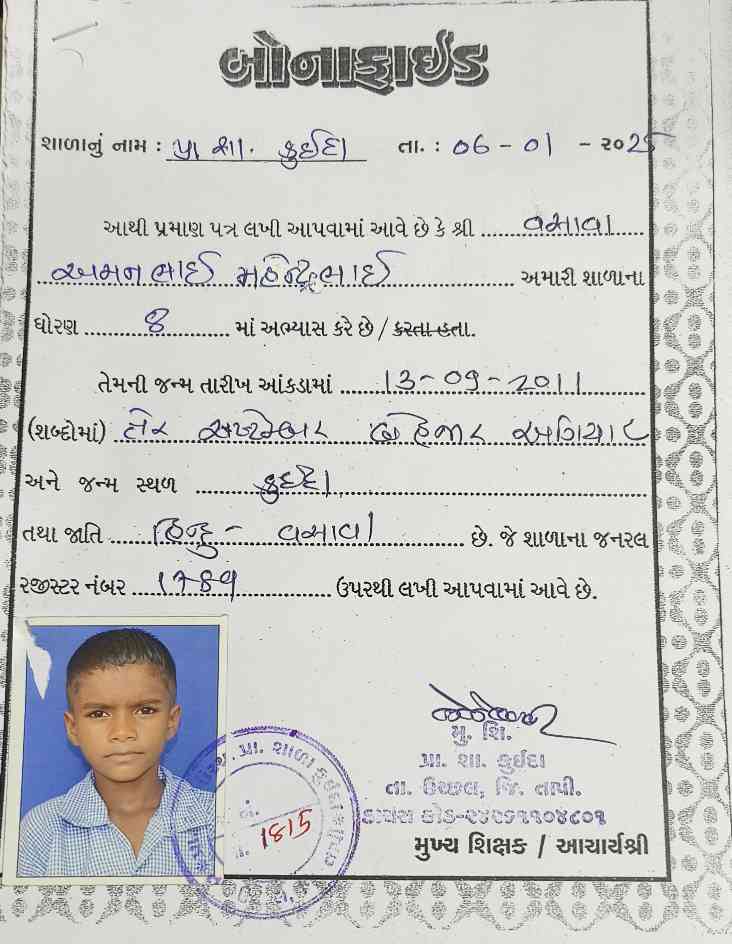 બોનાફાઈડ
શાળાનું નામ : પ્રા શા. કુઈદા તા. : 06 - 01 - ૨૦25
આથી પ્રમાણ પત્ર લખી આપવામાં આવે છે કે શ્રી વસાવા
અમનભાઈ મહેન્દ્રભાઈ અમારી શાળાના
ધોરણ 8 માં અભ્યાસ કરે છે / કરતા હતા.
તેમની જન્મ તારીખ આંકડામાં 13-09-2011
(શબ્દોમાં) તેર સપ્ટેમ્બર બે હજાર અગિયાર
અને જન્મ સ્થળ કુઈદા
તથા જાતિ હિન્દુ - વસાવા છે. જે શાળાના જનરલ
રજીસ્ટર નંબર ઉપરથી લખી આપવામાં આવે છે.
મુ. શિ.
પ્રા. શા. કુઈદા
તા. ઉચ્છલ, જિ. તાપી.
ડાયસ કોડ-૨૪૨૬૧૧૦૪૮૦૧
મુખ્ય શિક્ષક / આચાર્યશ્રી
પ્રા. શાળા કુઈદા
1815